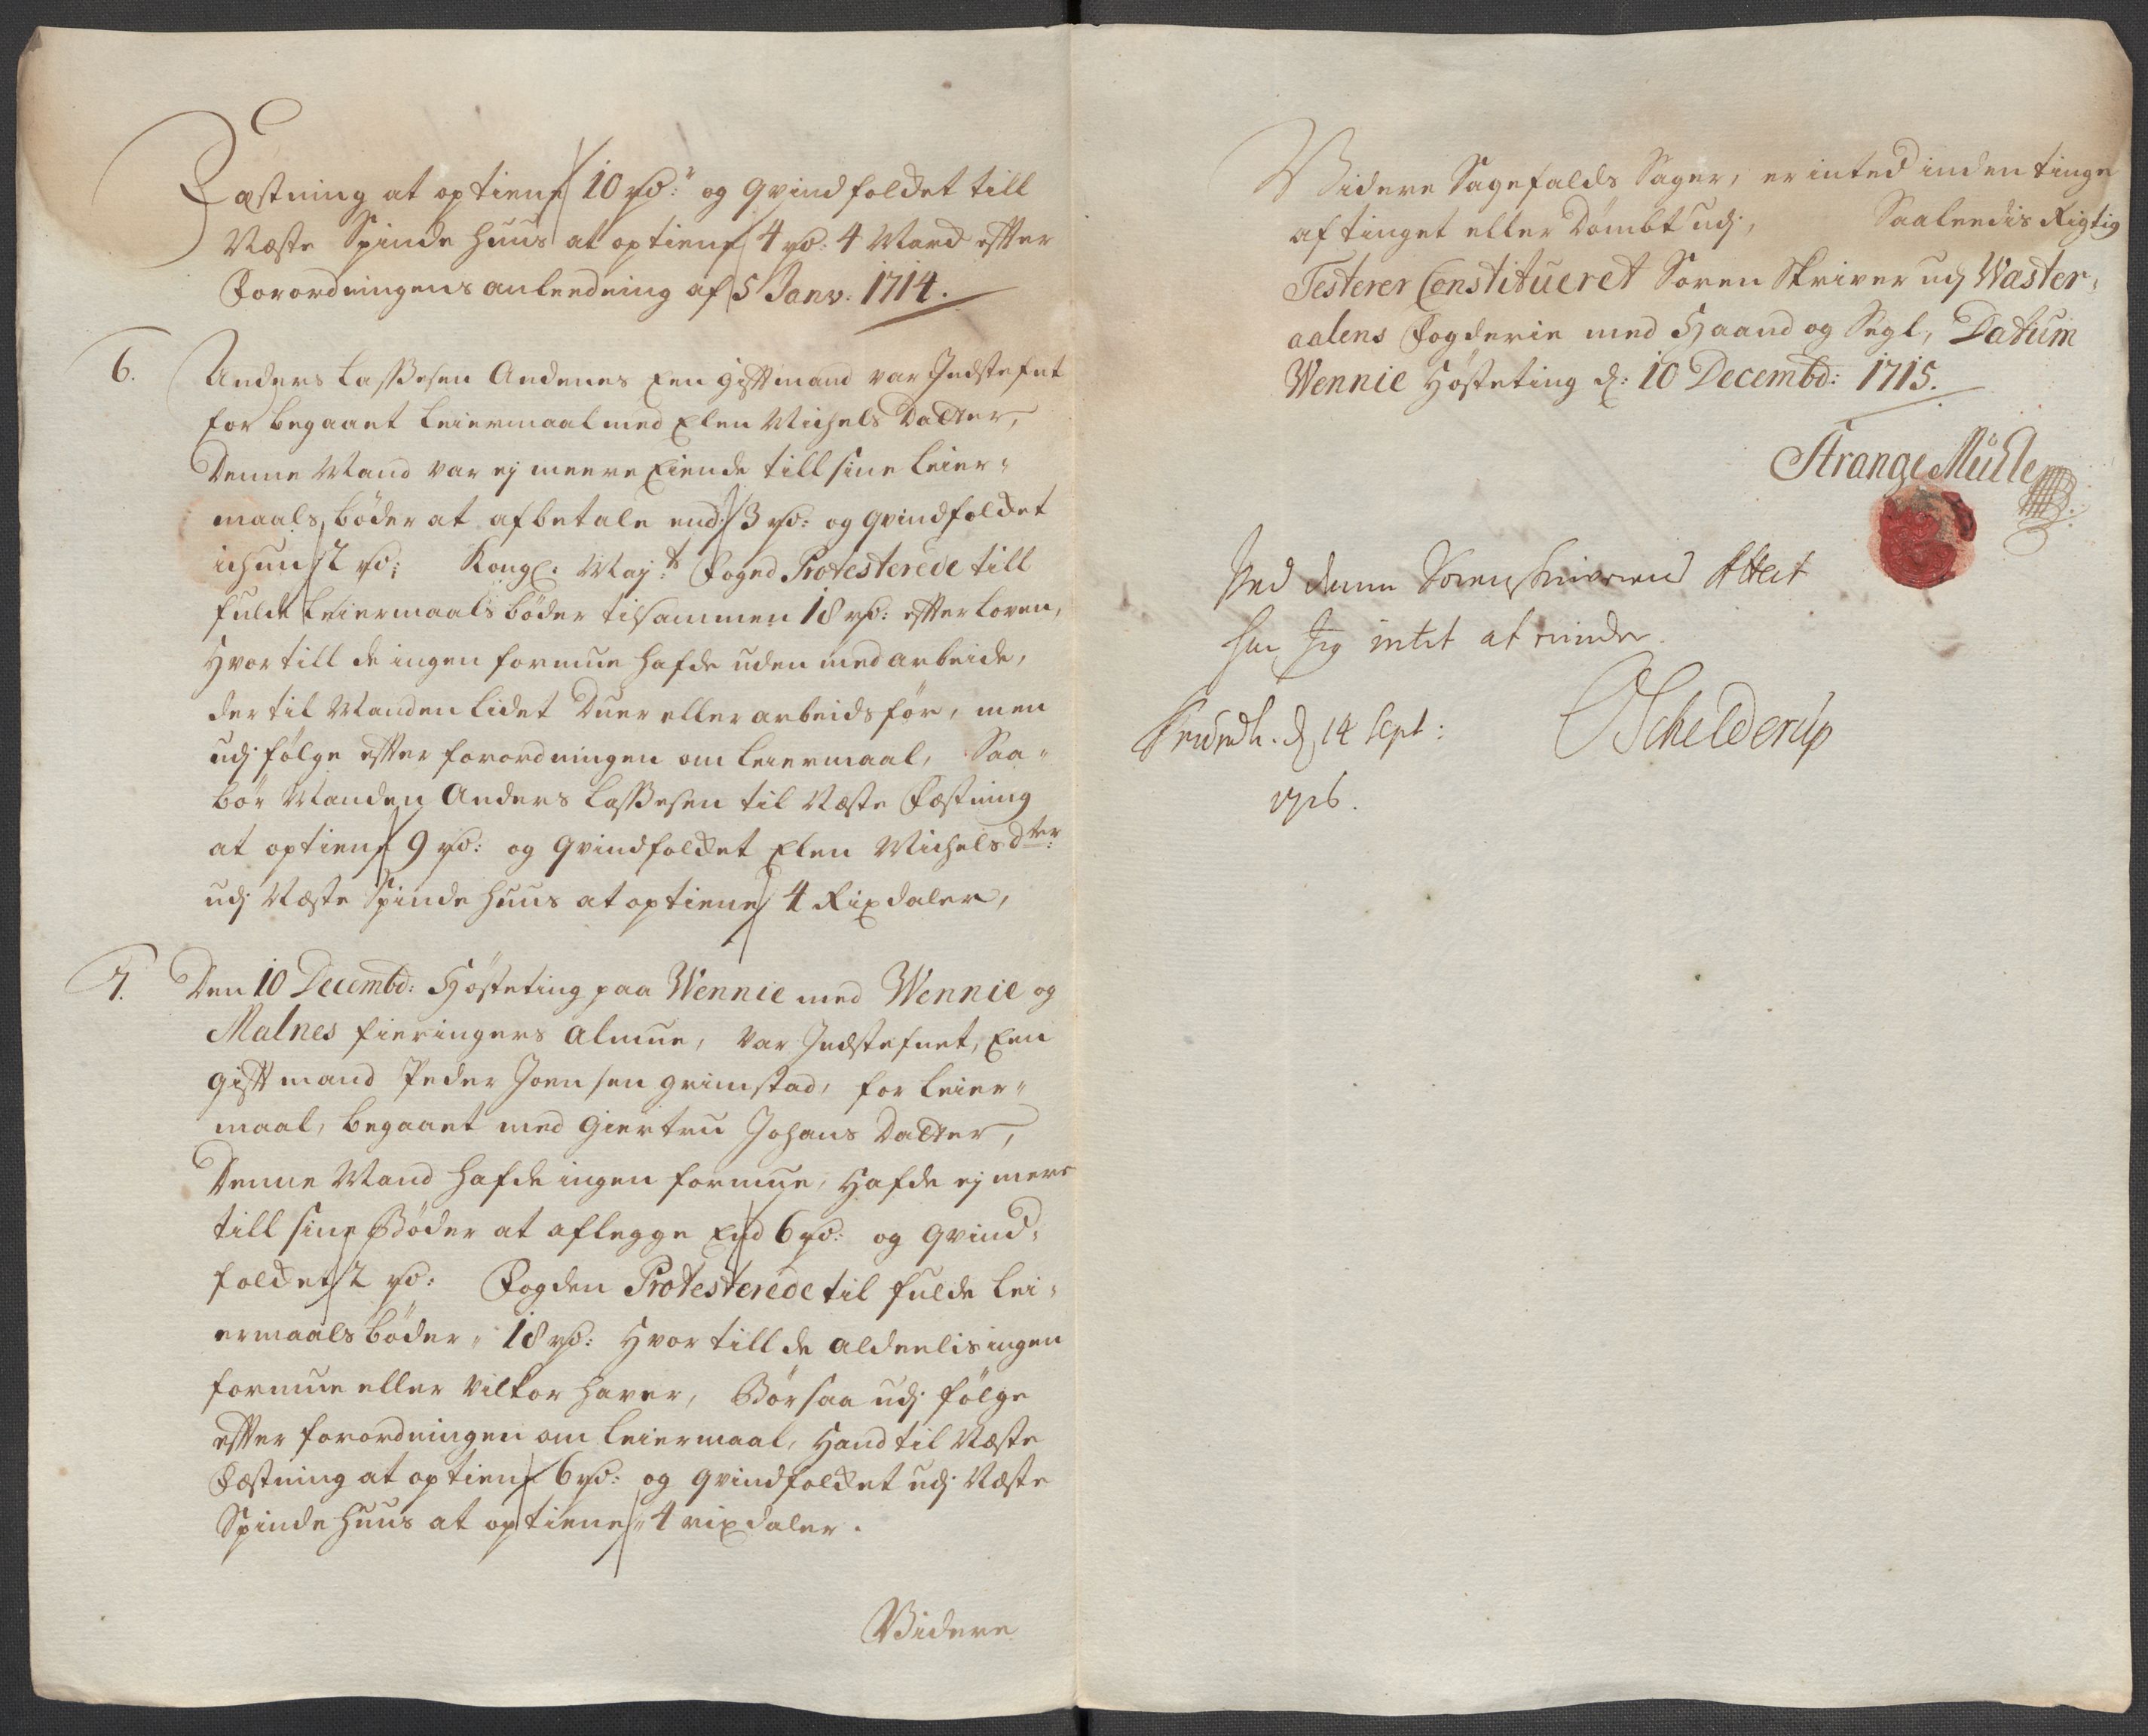 Fæstning at optiene 10 rd: og qvindfolchet till
Næste Spinde Huus at optiene 4 rd: 4 March efter
Forordningens anleedning af 5 Janv: 1714.
6. Anders Lassesen Andenes Een gift mand var Indstefnt
for begaaet Leiermaal med Elen Michels Datter,
Denne Mand var ej meere Eiende till sine Leier-
maals bøder at afbetale end 3 rd: og qvindfolchet
ichun 2 rd: Kongl. Maj:ts Foged Protesterede till
fulde Leiermaals bøder tilsammen 18 rd: efter Loven,
Hvor till de ingen formue hafde uden med arbeide,
der til Manden lidet Duer eller arbeids før, men
udj følge efter forordningen om Leiermaal, Saa-
bør Manden Anders Lassesen til Næste Fæstning
at optiene 9 rd: og qvindfolchet Elen Michels dter:
udj Næste Spinde Huus at optiene 4 Rixdaler,
7. Den 10 Decembd: Høsteting paa Wennie med Wennie og
Malnes fieringers Almue, var Indstefnet, Een
gift mand Peder Joensen Grimstad, for Leier-
maal, begaaet med Giertru Johans Datter,
Denne Mand hafde ingen formue, Hafde ej mere
till sine Bøder at aflegge End 6 rd: og qvind-
folchet 2 rd: Fogden Protesterede til fulde Lei-
ermaals bøder, 18 rd: Hvor till de aldeelis ingen
formue eller vilkor haver, Bør saa udj følge
efter forordningen om Leiermaal, Hand til Næste
Fæstning at optiene 6 rd: og qvindfolchet udj Næste
Spinde Huus at optiene 4 rixdaler.
Videre
Videre Sagefalds Sager, er inted inden tinge
af tinget eller Dømbt udj, Saaleedis Rigtig
Testerer Constitueret Soren Skriver udj Waster-
aalens Fogderie med Haand og Segl, Datum
Wennie Høsteting d: 10 Decembd: 1715.
Strange Müller
Ved denne Soren skriverens Attest
har Jeg intet at erindre.
Trundh. d 14 Sept:
1716.
O Schelderup